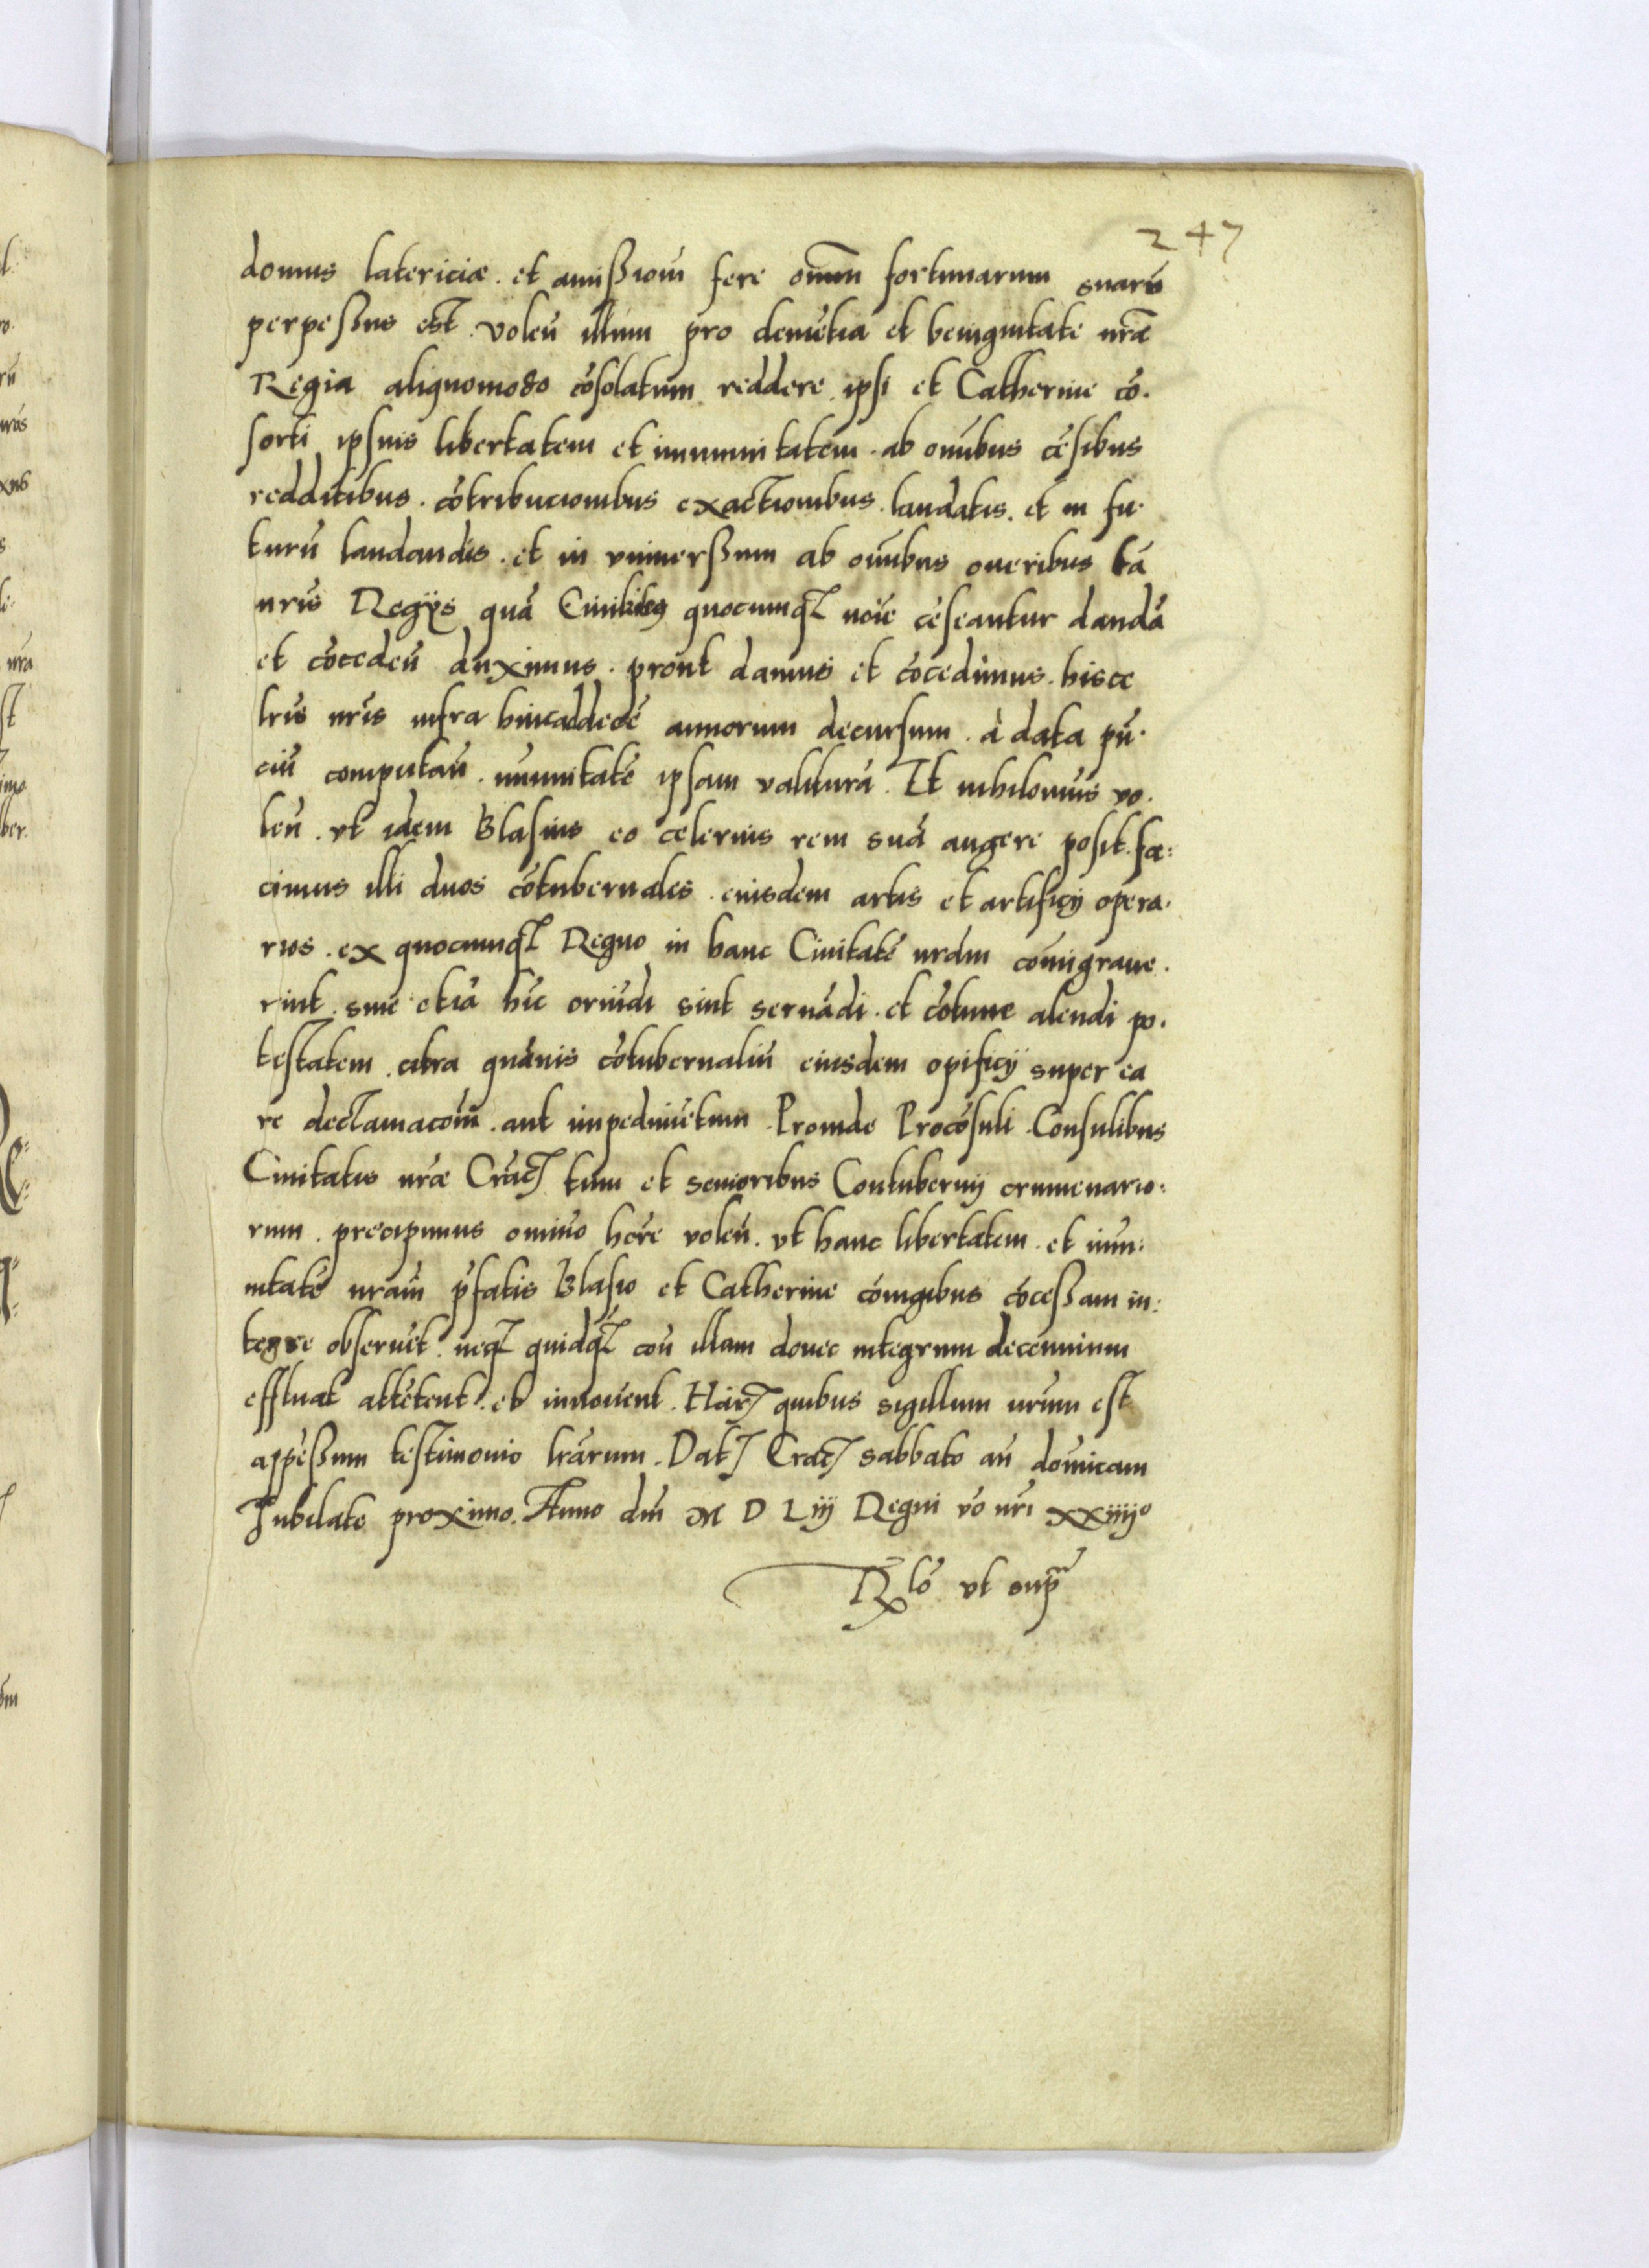 247
domus latericiæ. et amißioīm fere om̄m fortunarum suarū
perpeßus est. Voleń illum pro clemētia et benignitate nr̄a
Regia aliquomodo cōsolatum reddere. ipsi et Catherine cō.
sorti ipsuis libertatem et immunitatem. ab om̄ibus cēsibus
redditibus. cōtribucionibus exactionibus. laudatis. et in fu.
turū laudandis. et in vniuerßum ab om̄ibus oneribus tā
nr̄is Regijs quā Ciuilibus quocumq̨ noīe cēseantur dandā
et cōcedeń duximus. prout damus et cōcedimus. hisce
lr̄is nr̄is infra hinc ad decē annorum decursum. à data pn̄.
ciū computań. immunitatē ipsam valiturā. Et nihilominus vo.
leń. vt idem Blasius eo celerius rem suā augere posit. fa:
cimus illi duos cōtubernales. eiusdem artis et artificij opera.
rios. ex quocumq̨ Regno in hanc Ciuitatē nrām cōmigraue.
rint. siue etiā hīc oriūdi sint seruādi. et cōtinue alendi po.
testatem. citra quāuis cōtubernaliū eiusdem opificij super ea
re declamacōm̄. aut impedimētum. Proinde Procōsuli. Consulibus
Ciuitatis nr̄æ Crac̄ tum et senioribus Contubernij crumenario:
rum. precipimus omīno hr̄e voleń. vt hanc libertatem. et imm̄:
nitatē nrām p̄fatis Blasio et Catherine cōiugibus cōceßam in:
tegre obseruēt. neq̨ quidq̨ coń illam donec integrum decennium
effluat attētent. et innouent. Har̄ quibus sigillum nr̄um est
appēßum testimonio lr̄arum. Dat̄ Crac̄ sabbato an̄ domīcam
Jubilate proximo. Anno dnī M D Liij Regni vo nr̄i xxiiijº
R̨lō vt supr̄a